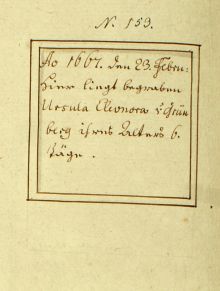 N. 153.
Ao 1667. den 23. Febru:
Hier liegt begraben
Ursula Eleonora v Grün
berg ihres Alters 6.
Täge.